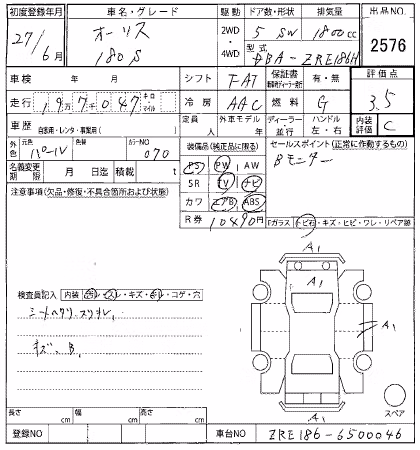 初度登録年月 車名・グレード 駆動 ドア数・形状 排気量 出品NO.
27/6月 オーリス 180S 2WD・4WD 5 SW 1800cc 2576
型式 DBA-ZRE186H
車検 年 月 シフト FAT 保証書 有・無 評価点 3.5
走行 197047 キロ・マイル 冷房 AAC 燃料 G
車歴 自家用・レンタ・事業用( ) 定員 人 外車モデル 年 ディーラー 並行 ハンドル 左・右 内装評価 C
外色 元色 パール 色替 カラーNO 070
装備品(純正品に限る) セールスポイント(正常に作動するもの)
PS PW AW Bモニター
名義変更期限 月 日迄 積載 t SR TV ナビ
注意事項(欠品・修復・不具合箇所および状態) カワ エアB ABS
R券 10490円 Fガラス トビ石・キズ・ヒビ・ワレ・リペア跡
A1
A1
検査員記入 内装 汚れ・スレ・キズ・切レ・コゲ・穴
シートヘタリ、スリキレ、
キズ、B、
A1
A1
スペア
長さ cm 幅 cm 高さ cm
登録NO 車台NO ZRE186-6500046